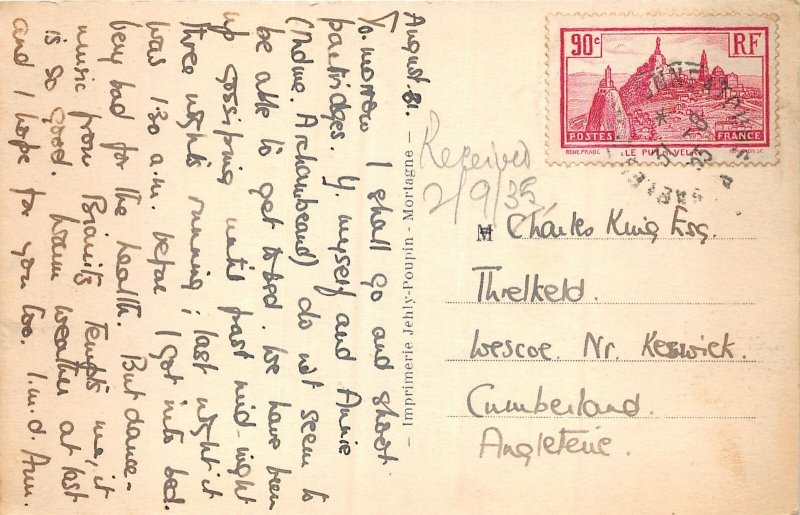 August 31.
Tomorrow I shall go and shoot
partridges. Y. myself and Annie
(Mdme. Archambeaud) do not seem to
be able to get to bed. We have been
up gossiping until past mid-night
three nights running; last night it
was 1.30 a.m. before I got into bed.
Very bad for the health. But dance-
music from Biarritz tempts me, it
is so good. Warm weather at last
and I hope for you too. I.m.d. Ann.
— Imprimerie Jehly-Poupin - Mortagne —
Received
2/9/35
90c RF
POSTES FRANCE
LE PUY EN VELAY
M Charles King Esq.
Threlkeld.
Wescoe. Nr. Keswick.
Cumberland.
Angleterre.